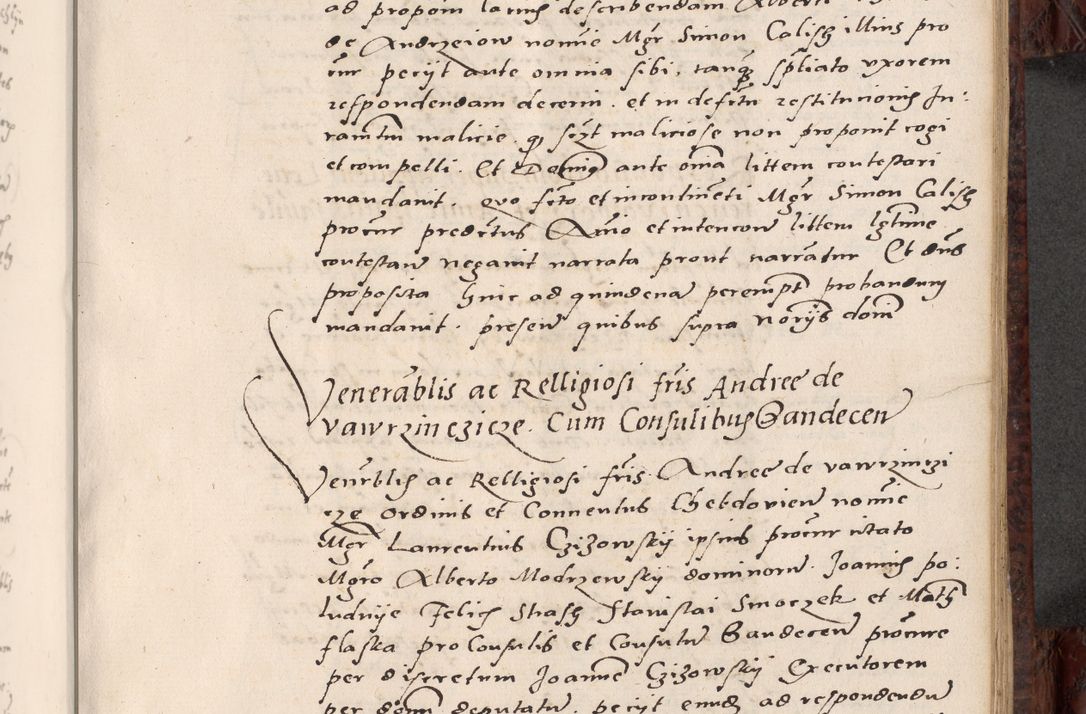 ad propom larius describendam Alberti
de Andrzeiow nomine Mgr Simon Calisz illius pro
cur petijt ante omnia sibi, tanquam spoliato vxorem
respondendam decerni. et in defectu restitucionis Iu:
ramtm malicie. quod scilicet maliciose non proponit cogi
et compelli. Et Dominus ante omnia littem contestari
mandauit. quo facto et incontinenti Mgr Simon Calisz
procur predictus Animo et intencione littem legitime
contestan negauit narrata prout narrantur Et dnus
proposita hinc ad quindena perempt probandum
mandauit. presen quibus supra Norijs domi
Venerablis ac Relligiosi fris Andree de
vawrzinczicze. Cum Consulibus Sandecen
Venrblis ac Relligiosi fris. Andree de vawrzinczi
cze Ordinis et Conuentus Chebdovien nomine
Mgr Laurentius Czizowskij ipsius procur citato
Mgro Alberto Modrzewskij dominorum. Joannis po:
ludnije Felicis Strasz Stanislai Smoczek et Math
flaska proConsulis et Consulum Sandecen procure
per discretum Joannem Czizowskij Executorem
per domi deputatum. petijt eundem ad respondendum